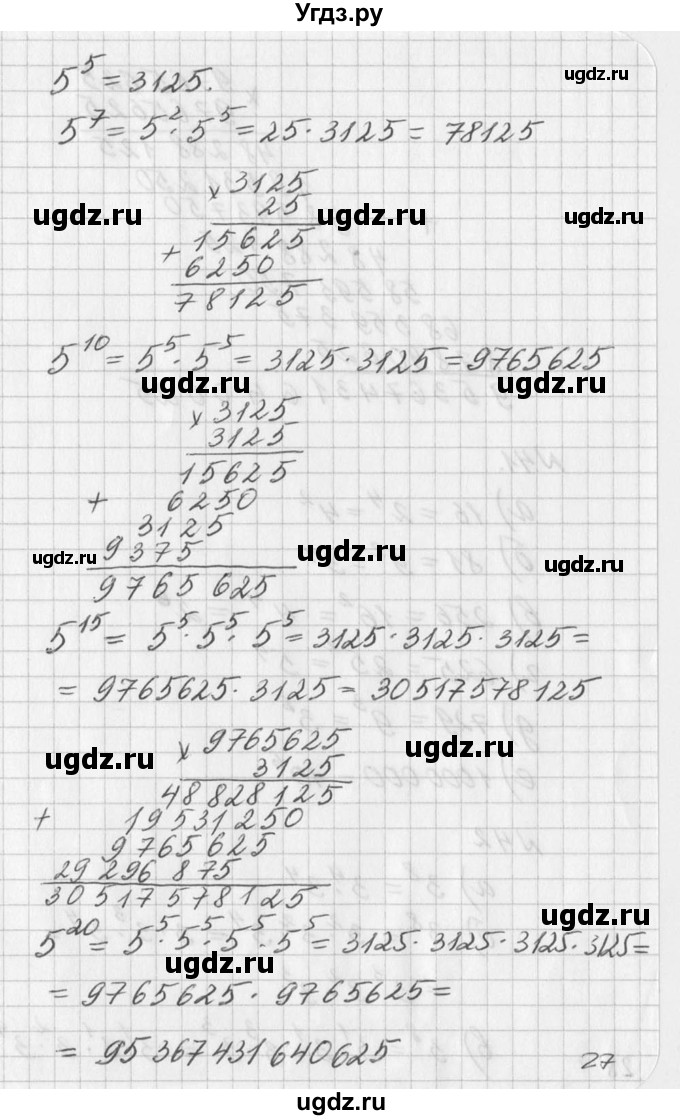 Угдз.ру
5⁵ = 3125.
ugdz.ru
5⁷ = 5² · 5⁵ = 25 · 3125 = 78125
× 3125
25
ugdz.ru ugdz.ru ugdz.ru
15625
+ 6250
78125
5¹⁰ = 5⁵ · 5⁵ = 3125 · 3125 = 9765625
ugdz.ru ugdz.ru
× 3125
3125
15625
+ 6250
3125
9375
ugdz.ru ugdz.ru ugdz.ru
9765 625
5¹⁵ = 5⁵ · 5⁵ · 5⁵ = 3125 · 3125 · 3125 =
= 9765625 · 3125 = 30517578125
× 9765625
ugdz.ru ugdz.ru
3125
48828125
+ 19531250
9765625
29 296 875
30 517 578 125
ugdz.ru
5²⁰ = 5⁵ · 5⁵ · 5⁵ · 5⁵ = 3125 · 3125 · 3125 · 3125 =
ugdz.ru
= 9765625 · 9765625 =
= 95 367431 640625
27
ugdz.ru